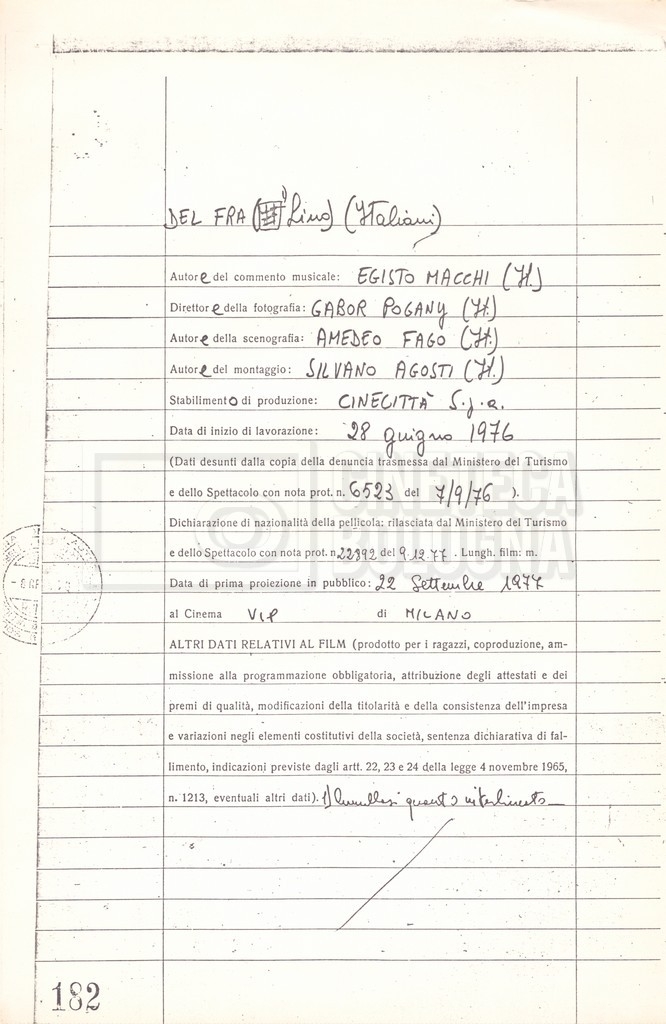 DEL FRA ( 1) Lino) (Italiani)
Autore del commento musicale: EGISTO MACCHI (It.)
Direttore della fotografia: GABOR POGANY (It.)
Autore della scenografia: AMEDEO FAGO (It.)
Autore del montaggio: SILVANO AGOSTI (It.)
Stabilimento di produzione: CINECITTÀ S.p.a.
Data di inizio di lavorazione: 28 giugno 1976
(Dati desunti dalla copia della denuncia trasmessa dal Ministero del Turismo
e dello Spettacolo con nota prot. n. 6523 del 7/9/76 ).
Dichiarazione di nazionalità della pellicola: rilasciata dal Ministero del Turismo
e dello Spettacolo con nota prot. n 22392 del 9.12.77. Lungh. film: m.
Data di prima proiezione in pubblico: 22 Settembre 1977
al Cinema VIP di MILANO
ALTRI DATI RELATIVI AL FILM (prodotto per i ragazzi, coproduzione, am-
missione alla programmazione obbligatoria, attribuzione degli attestati e dei
premi di qualità, modificazioni della titolarità e della consistenza dell'impresa
e variazioni negli elementi costitutivi della società, sentenza dichiarativa di fal-
limento, indicazioni previste dagli artt. 22, 23 e 24 della legge 4 novembre 1965,
n. 1213, eventuali altri dati). 1) Annullasi quanto interlineato
182
CINETECA
BOLOGNA